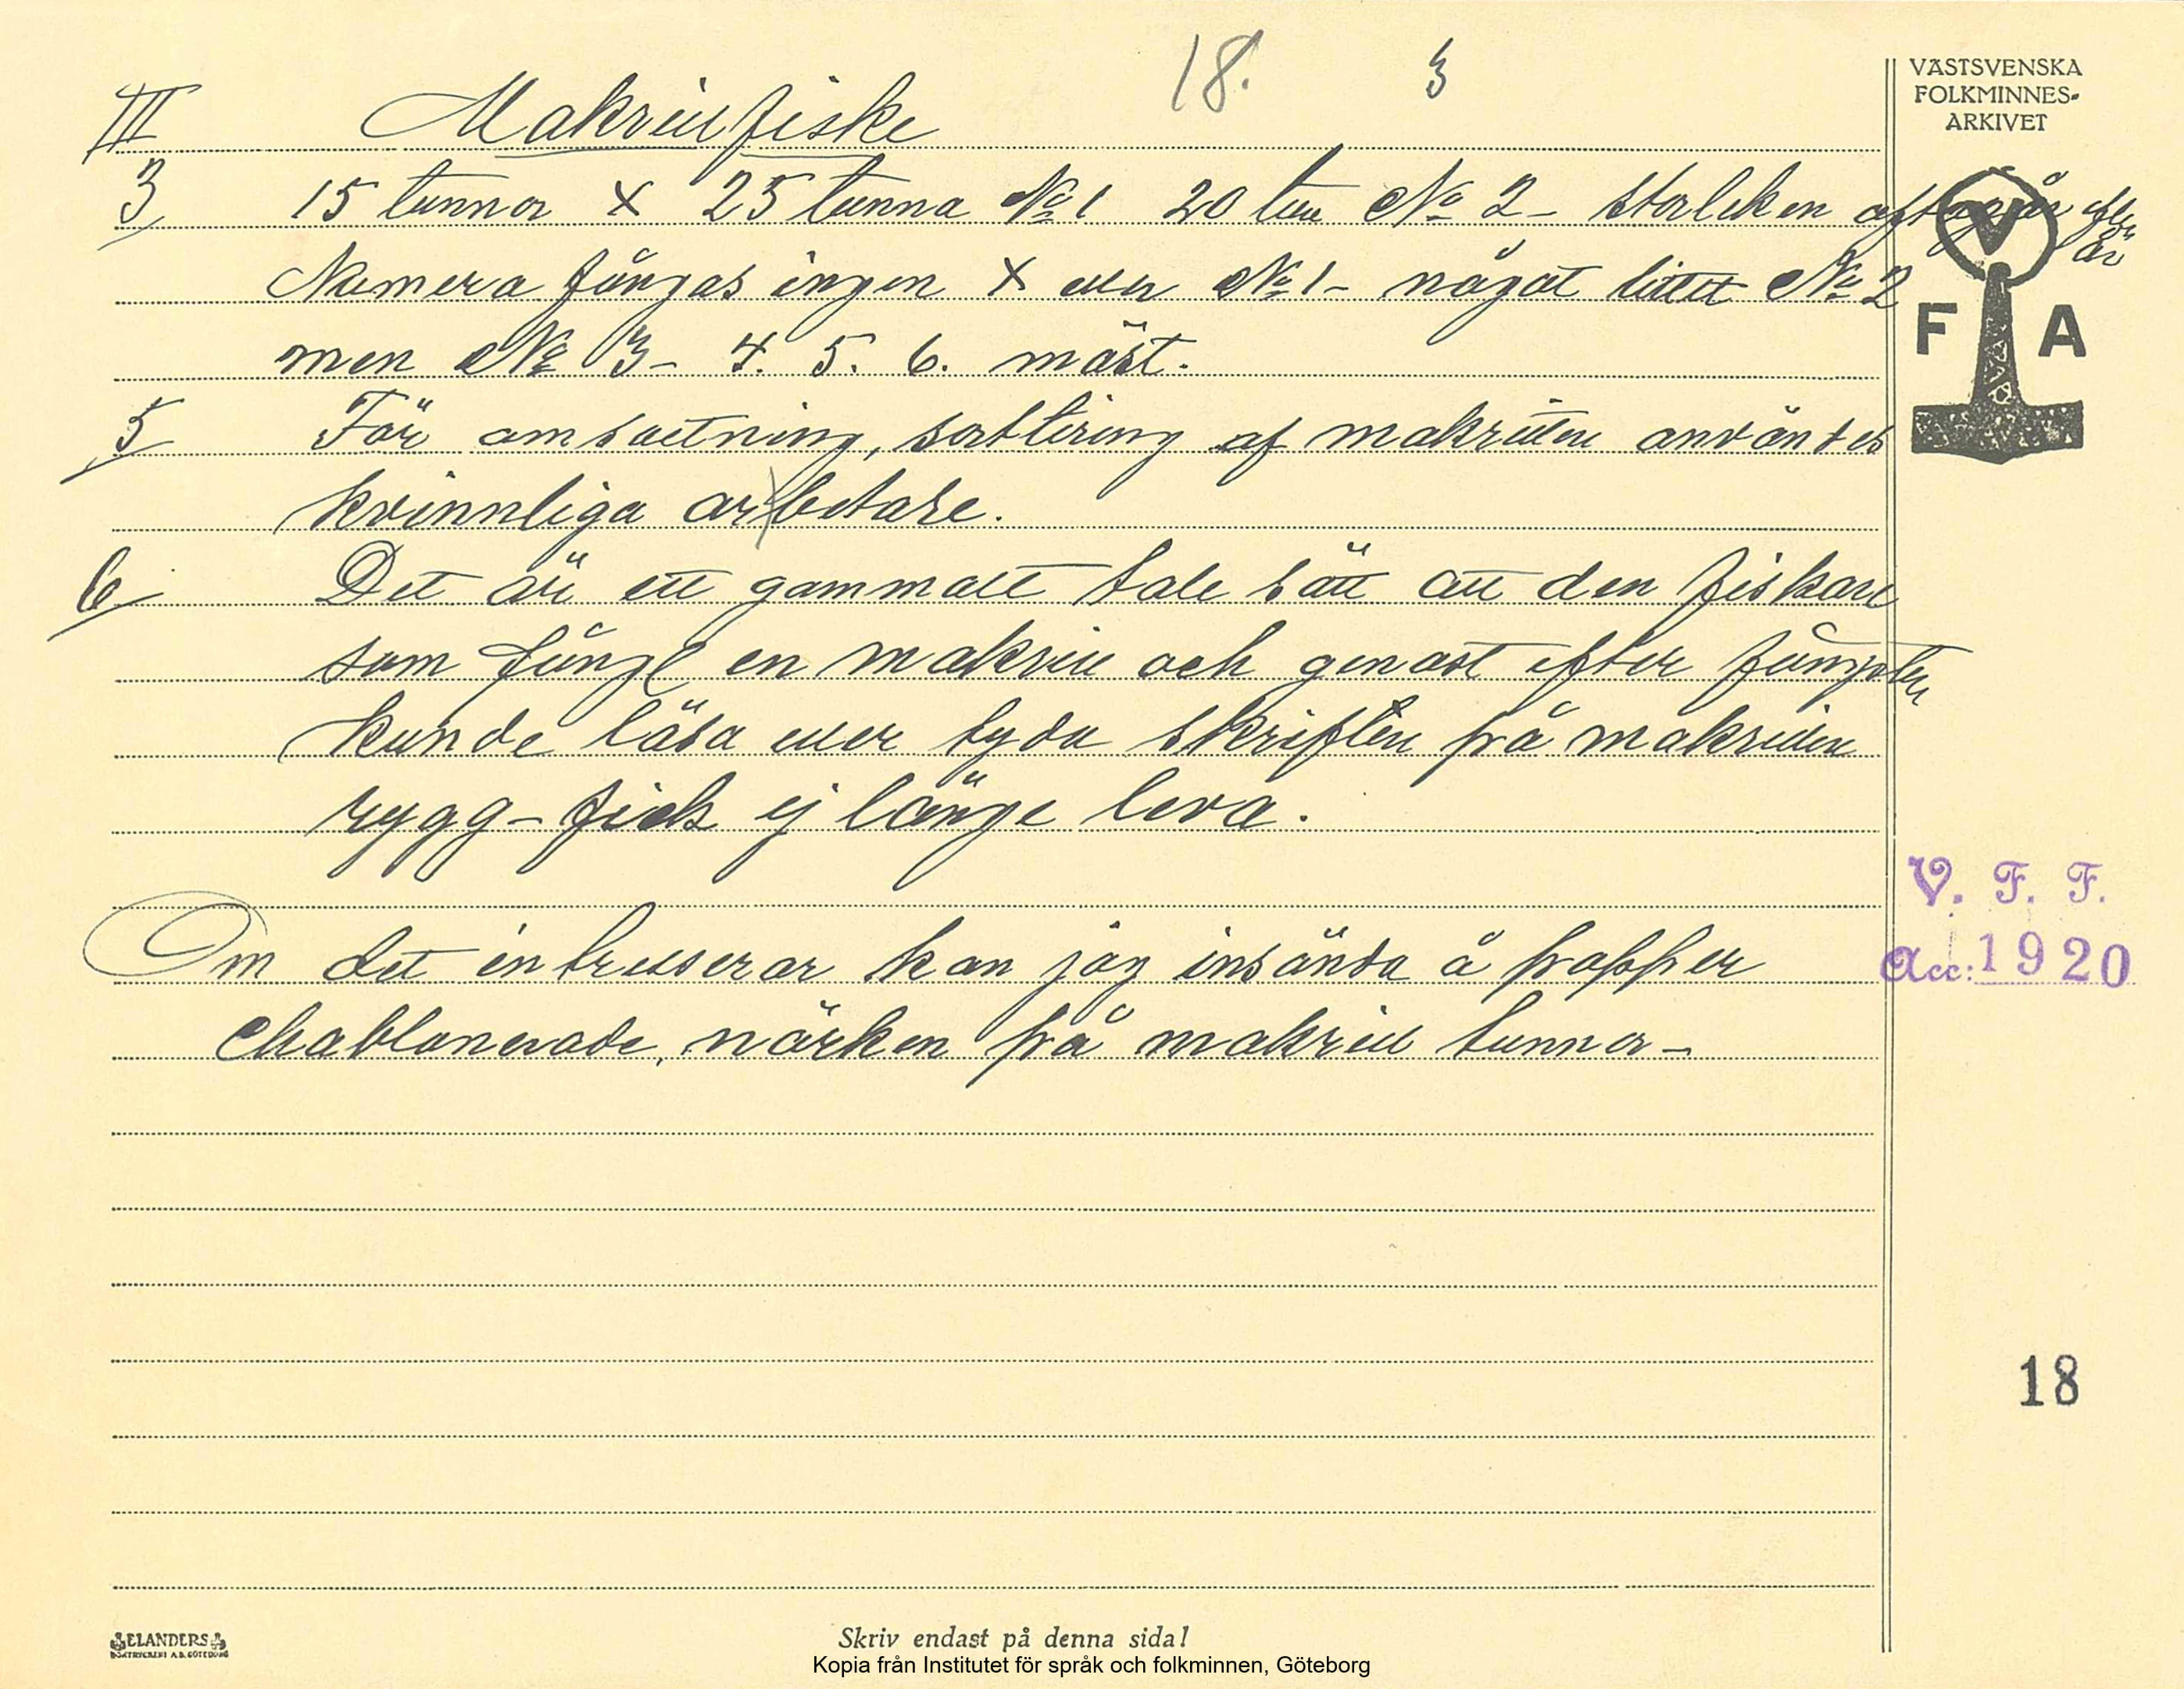 18. 3
VÄSTSVENSKA
FOLKMINNES-
ARKIVET
III Makrillfiske
3 15 tunnor X 25 tunna No 1 20 tun No 2 - storleken aftager efter
år
Numera fångas ingen X eller No 1 - något litet No 2
men No 3 - 4. 5. 6. mäst.
V
F A
5 För omsaltning, sorttering af makrillen användes
kvinnliga arbetare.
6 Det är ett gammalt tale sätt att den fiskare
som fångt en makrill och genast efter fångsten
kunde läsa eller tyda skriften på makrillen
rygg - fick ej länge leva.
V. F. F.
Acc: 1920
Om det intresserar kan jag insända å papper
Chablonerade, närken på makrill tunnor -
18
ELANDERS
BOKTRYCKERI A.B. GÖTEBORG
Skriv endast på denna sida!
Kopia från Institutet för språk och folkminnen, Göteborg